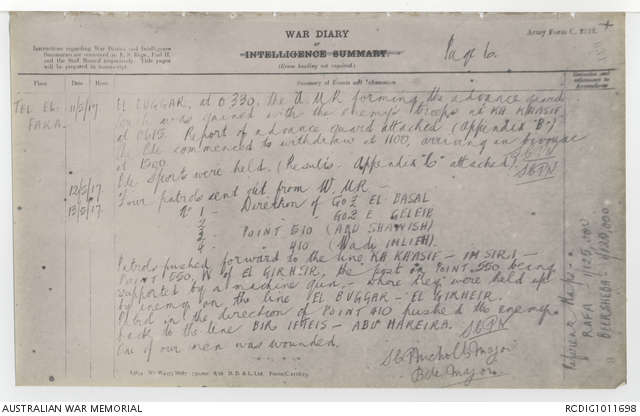 WAR DIARY
or
INTELLIGENCE SUMMARY.
(Erase heading not required).
Army Form C. 2118.
Page 6.
Instructions regarding War Diaries and Intelligence
Summaries are contained in F. S. Regs., Part II.
and the Staff Manual respectively. Title pages
will be prepared in manuscript.
Place Date Hour Summary of Events and Information Remarks and references to Appendices
TEL EL FARA. 11/5/17 EL BUGGAR, at 0330, the W.M.R forming the advance guard
Touch was gained with the enemy's troops at KH KHASIF
at 0615. Report of advance guard attached (Appendix "B")
The Bde commenced to withdraw at 1100, arriving in bivouac
at 1500
12/5/17 Bde Sports were held. (Results - Appendix "C" attached)
13/5/17 Four patrols send out from W.M.R -
No 1 - Direction of GOZ EL BASAL
2 - GOZ E GELEIB
3 - POINT 510 (ABU SHAWISH)
4 - 410 (Wady IMLEIH).
Patrols pushed forward to the line KH KHASIF - IM SIRI -
POINT 550, N of EL GIRHEIR, the post in POINT 550 being
supported by a machine gun - where they were held up
by enemy on the line EL BUGGAR - EL GIRHEIR.
Patrol in the direction of POINT 410 pushed the enemy
back to the line BIR IFTEIS - ABU HAREIRA.
One of our men was wounded.
Major
Bde Major
Reference Maps:-
RAFA
BEERSHEBA
AUSTRALIAN WAR MEMORIAL
RCDIG1011698